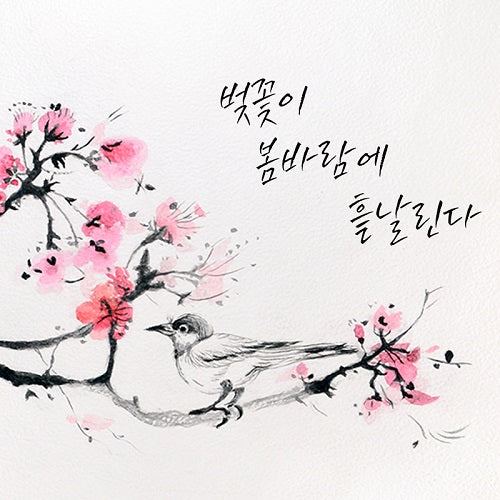 벚꽃이
봄바람에
흩날린다